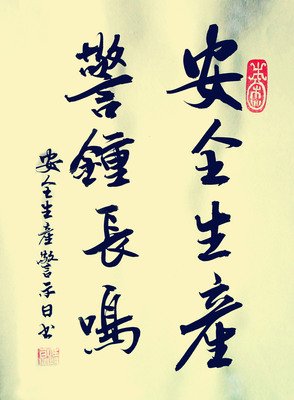 安全生產
警鍾長鳴
安全生產警示日书